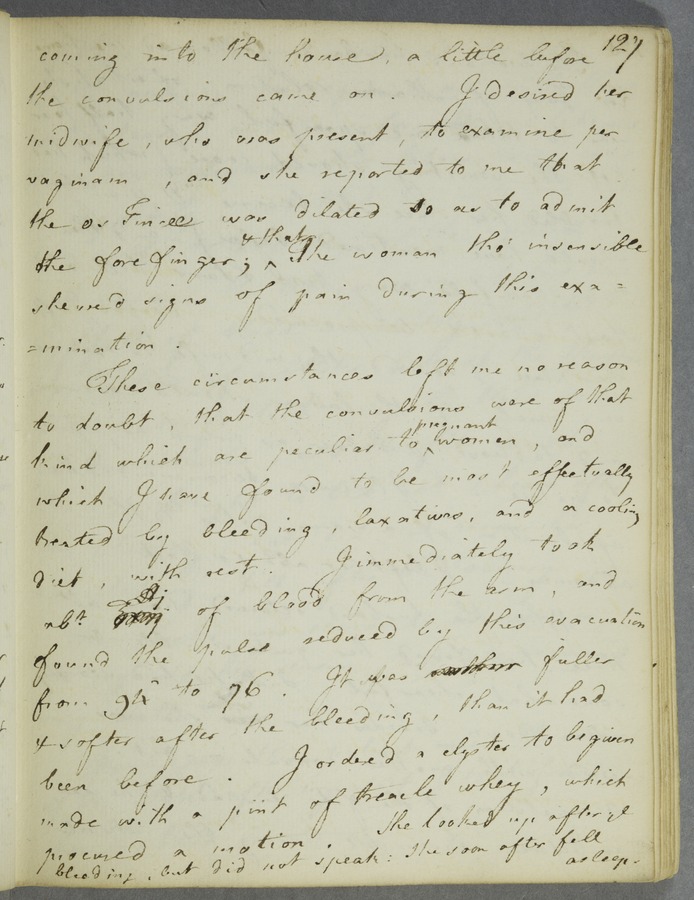 127
coming into the house, a little before
the convulsions came on. I desired her
midwife, who was present, to examine per
vaginam, and she reported to me that
the os Tincæ was dilated so as to admit
the fore finger; & that the woman tho' insensible
shewed signs of pain during this exa=
=mination.
These circumstances left me no reason
to doubt, that the convulsions were of that
kind which are peculiar to pregnant women, and
which I have found to be most effectually
treated by bleeding, laxatives, and a cooling
diet, with rest. I immediately took
abt of blood from the arm, and
found the pulse reduced by this evacuation
from 94 to 76. It was fuller
& softer after the bleeding, than it had
been before. I ordered a clyster to be given
made with a pint of treacle whey, which
procured a motion. She looked up after ye
bleeding, but did not speak: she soon after fell
asleep.